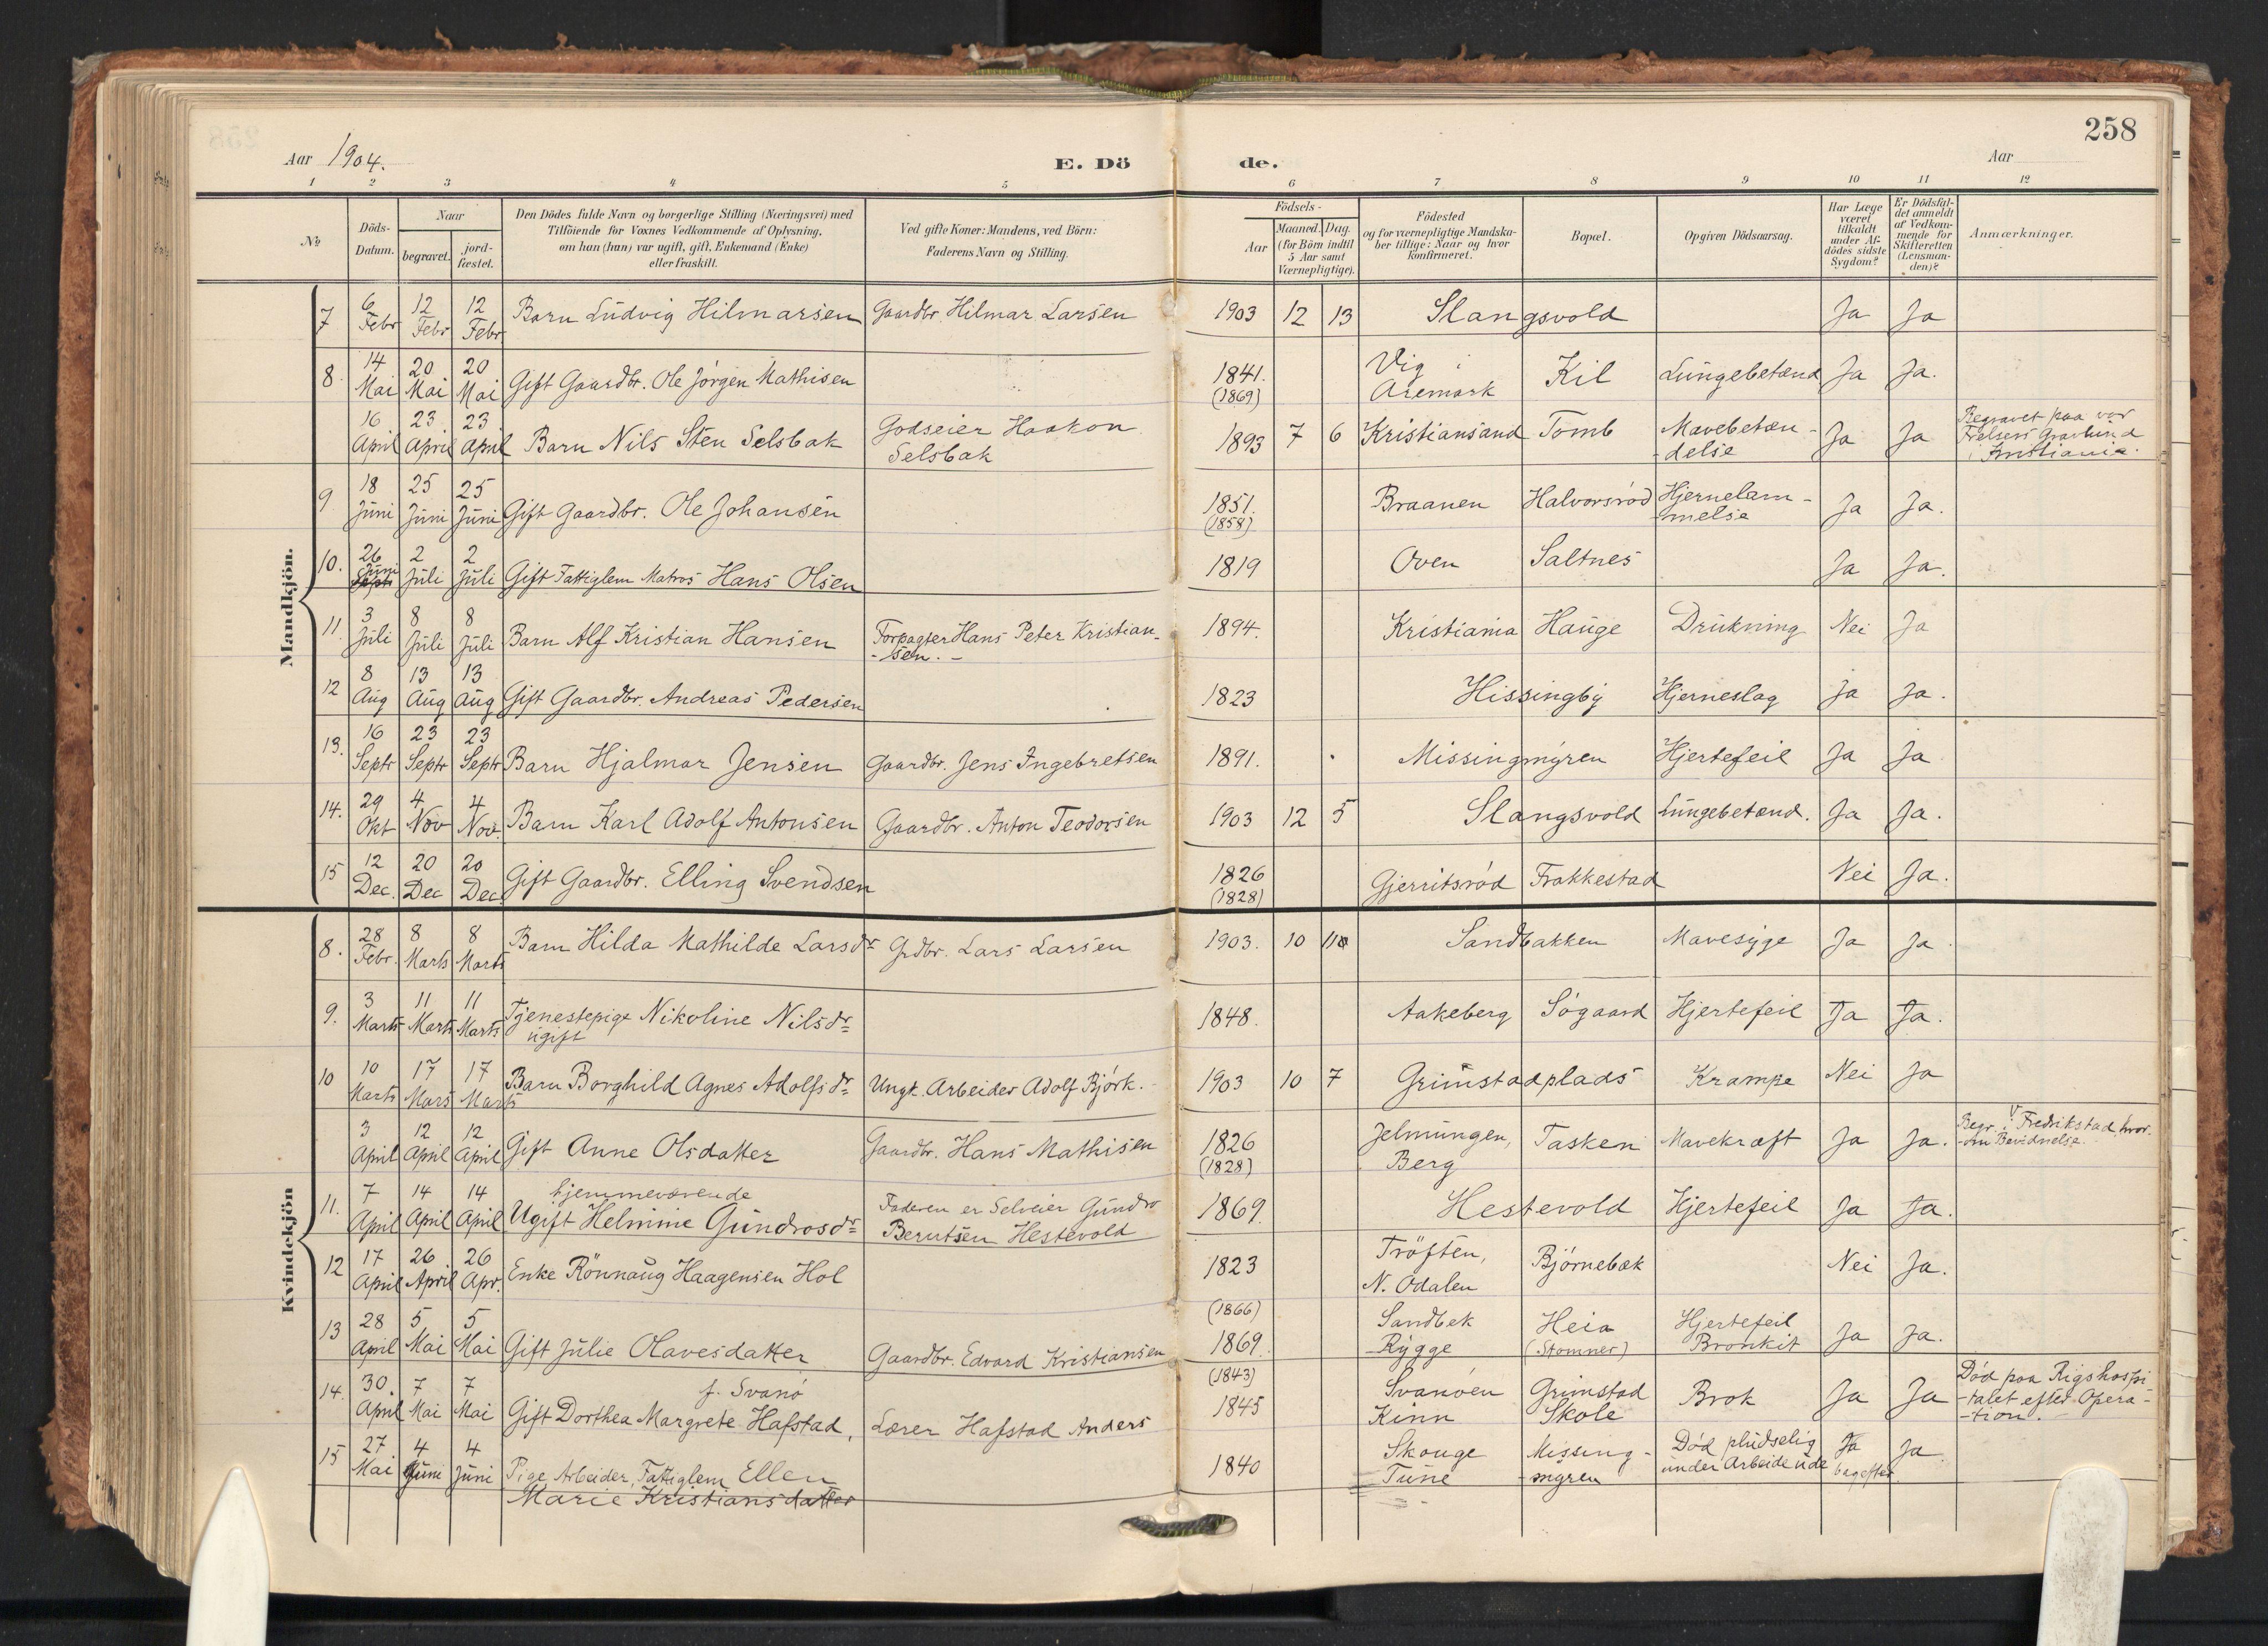 258
Aar 1904.
E. Döde.
Aar
1 2 3 4 5 6 7 8 9 10 11 12
No
Döds-Datum.
Naar
begravet. jord-fæstet.
Den Dödes fulde Navn og borgerlige Stilling (Næringsvei) med
Tilföiende for Voxnes Vedkommende af Oplysning,
om han (hun) var ugift, gift, Enkemand (Enke)
eller fraskilt.
Ved gifte Koner: Mandens, ved Börn:
Faderens Navn og Stilling.
Födsels-
Aar Maaned. Dag.
(for Börn indtil
5 Aar samt
Værnepligtige).
Födested
og for værnepligtige Mandska-
ber tillige: Naar og hvor
konfirmeret.
Bopæl.
Opgiven Dödsaarsag.
Har Læge
været
tilkaldt
under Af-
dödes sidste
Sygdom?
Er Dödsfal-
det anmeldt
af Vedkom-
mende for
Skifteretten
(Lensman-
den)?
Anmærkninger.
Mandkjön.
7 6 Febr 12 Febr 12 Febr Barn Ludvig Hilmarsen Gaardbr. Hilmar Larsen 1903 12 13 Slangsvold Ja Ja
8. 14 Mai 20 Mai 20 Mai Gift Gaardbr. Ole Jörgen Mathisen 1841. (1869) Vig i Aremark Kil Lungebetænd Ja Ja.
16 April 23 April 23 April Barn Nils Sten Selsbak Godseier Haakon Selsbak 1893 7 6 Kristiansand Tomb Mavebetæn-delse Ja Ja Begravet paa vor Frelsers Gravlund i Kristiania.
9 18 Juni 25 Juni 25 Juni Gift Gaardbr. Ole Johansen 1851. (1858) Braanen Halvorsröd Hjernelam-melse Ja Ja.
10. 26 Juni 2 Juli 2 Juli Gift Fattiglem Matros Hans Olsen 1819 Oven Saltnes Ja Ja.
11. 3 Juli 8 Juli 8 Juli Barn Alf Kristian Hansen Forpagter Hans Peter Kristian-sen. 1894. Kristiania Hauge Drukning Nei Ja
12 8 Aug 13 Aug 13 Aug Gift Gaardbr. Andreas Pedersen 1823 Hissingby Hjerneslag Ja Ja.
13. 16 Septr 23 Septr 23 Septr Barn Hjalmar Jensen Gaardbr. Jens Ingebretsen 1891. Missingmyren Hjertefeil Ja Ja
14. 29 Okt 4 Nov 4 Nov. Barn Karl Adolf Antonsen Gaardbr. Anton Teodorsen 1903 12 5 Slangsvold Lungebetænd. Ja Ja.
15 12 Dec. 20 Dec 20 Dec. Gift Gaardbr. Elling Svendsen 1826 (1828) Gjerritsröd Frakkestad Nei Ja.
Kvindekjön
8. 28 Febr. 8 Marts 8 Marts Barn Hilda Mathilde Larsdr Grdbr. Lars Larsen 1903. 10 Sandbakken Mavesyge Ja Ja.
9. 3 Marts 11 Marts 11 Marts Tjenestepige Nikoline Nilsdr ugift 1848. Aakeberg Sögaard Hjertefeil Ja Ja.
10 10 Marts 17 Mars 17 Marts Barn Borghild Agnes Adolfsdr Ungk. Arbeider Adolf Björk. 1903 10 7 Grimstadplads Krampe Nei Ja
3 April 12 April 12 April Gift Anne Olsdatter Gaardbr. Hans Mathisen 1826 (1828) Jelmungen, Berg Tasken Mavekræft Ja Ja. Begr. i V. Fredrikstad, hvor-om Bevidnelse.
11. 7 April 14 April 14 April hjemmeværende Ugift Helmine Gundrosdr Faderen er Selveier Gundro Berntsen Hestevold 1869. Hestevold Hjertefeil Ja Ja.
12 17 April 26 April 26 Apr. Enke Rönnaug Haagensen Hol 1823 Tröften, N. Odalen Björnebæk Nei Ja.
13 28 April 5 Mai 5 Mai Gift Julie Olavesdatter Gaardbr. Edvard Kristiansen (1866) 1869. Sandbek Rygge Heia (Stomner) Hjertefeil Bronkit Ja Ja.
14. 30. April 7 Mai 7 Mai f. Svanö Gift Dorthea Margrete Hafstad, Lærer Hafstad Anders (1843) 1845 Svanöen Kinn Grimstad Skole Brok Ja Ja Död paa Rigshospi-talet efter Opera-tion.
15 27. Mai 4 Juni 4 Juni Pige, Arbeider, Fattiglem Ellen Marie Kristiansdatter 1840 Skouge Tune Missing-myren Död pludselig under Arbeide ude Ja bagefter Ja